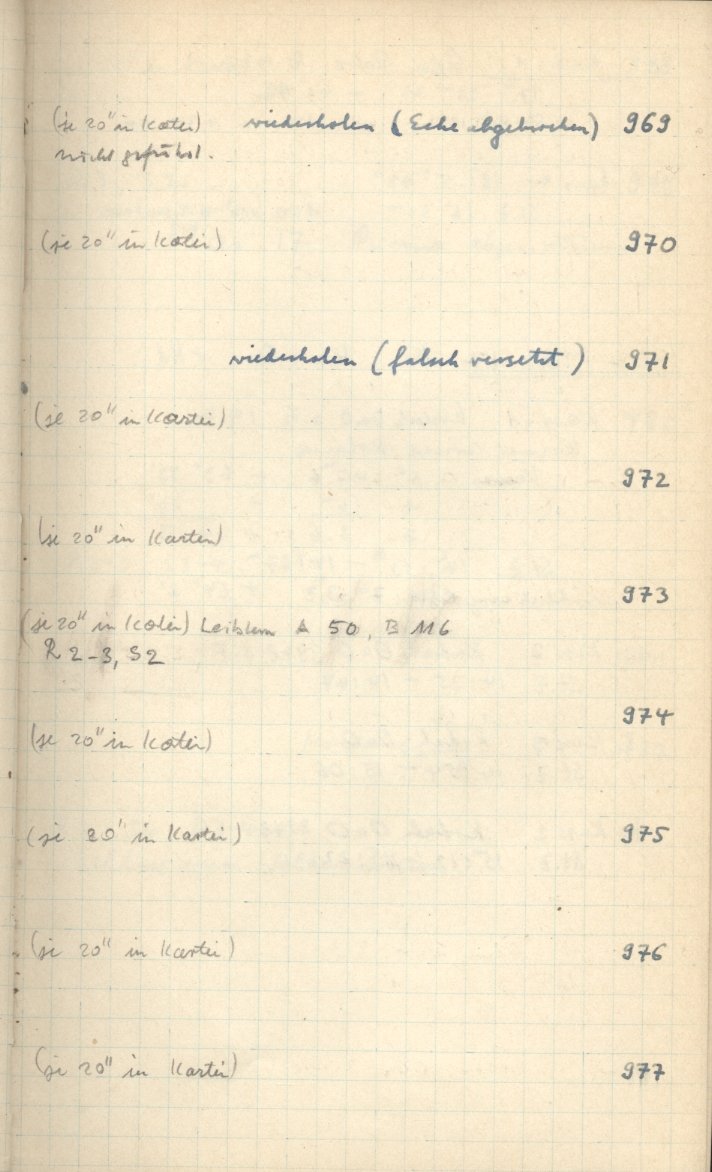 (je 20" in Kartei) wiederholen (Ecke abgebrochen) 969
nicht geführt.
(je 20" in Kartei) 970
wiederholen (falsch versetzt) 971
(je 20" in Kartei)
972
(je 20" in Kartei)
973
(je 20" in Kartei) Leitstern A 50, B 116
R 2-3, S2
974
(je 20" in Kartei)
(je 20" in Kartei) 975
(je 20" in Kartei) 976
(je 20" in Kartei) 977